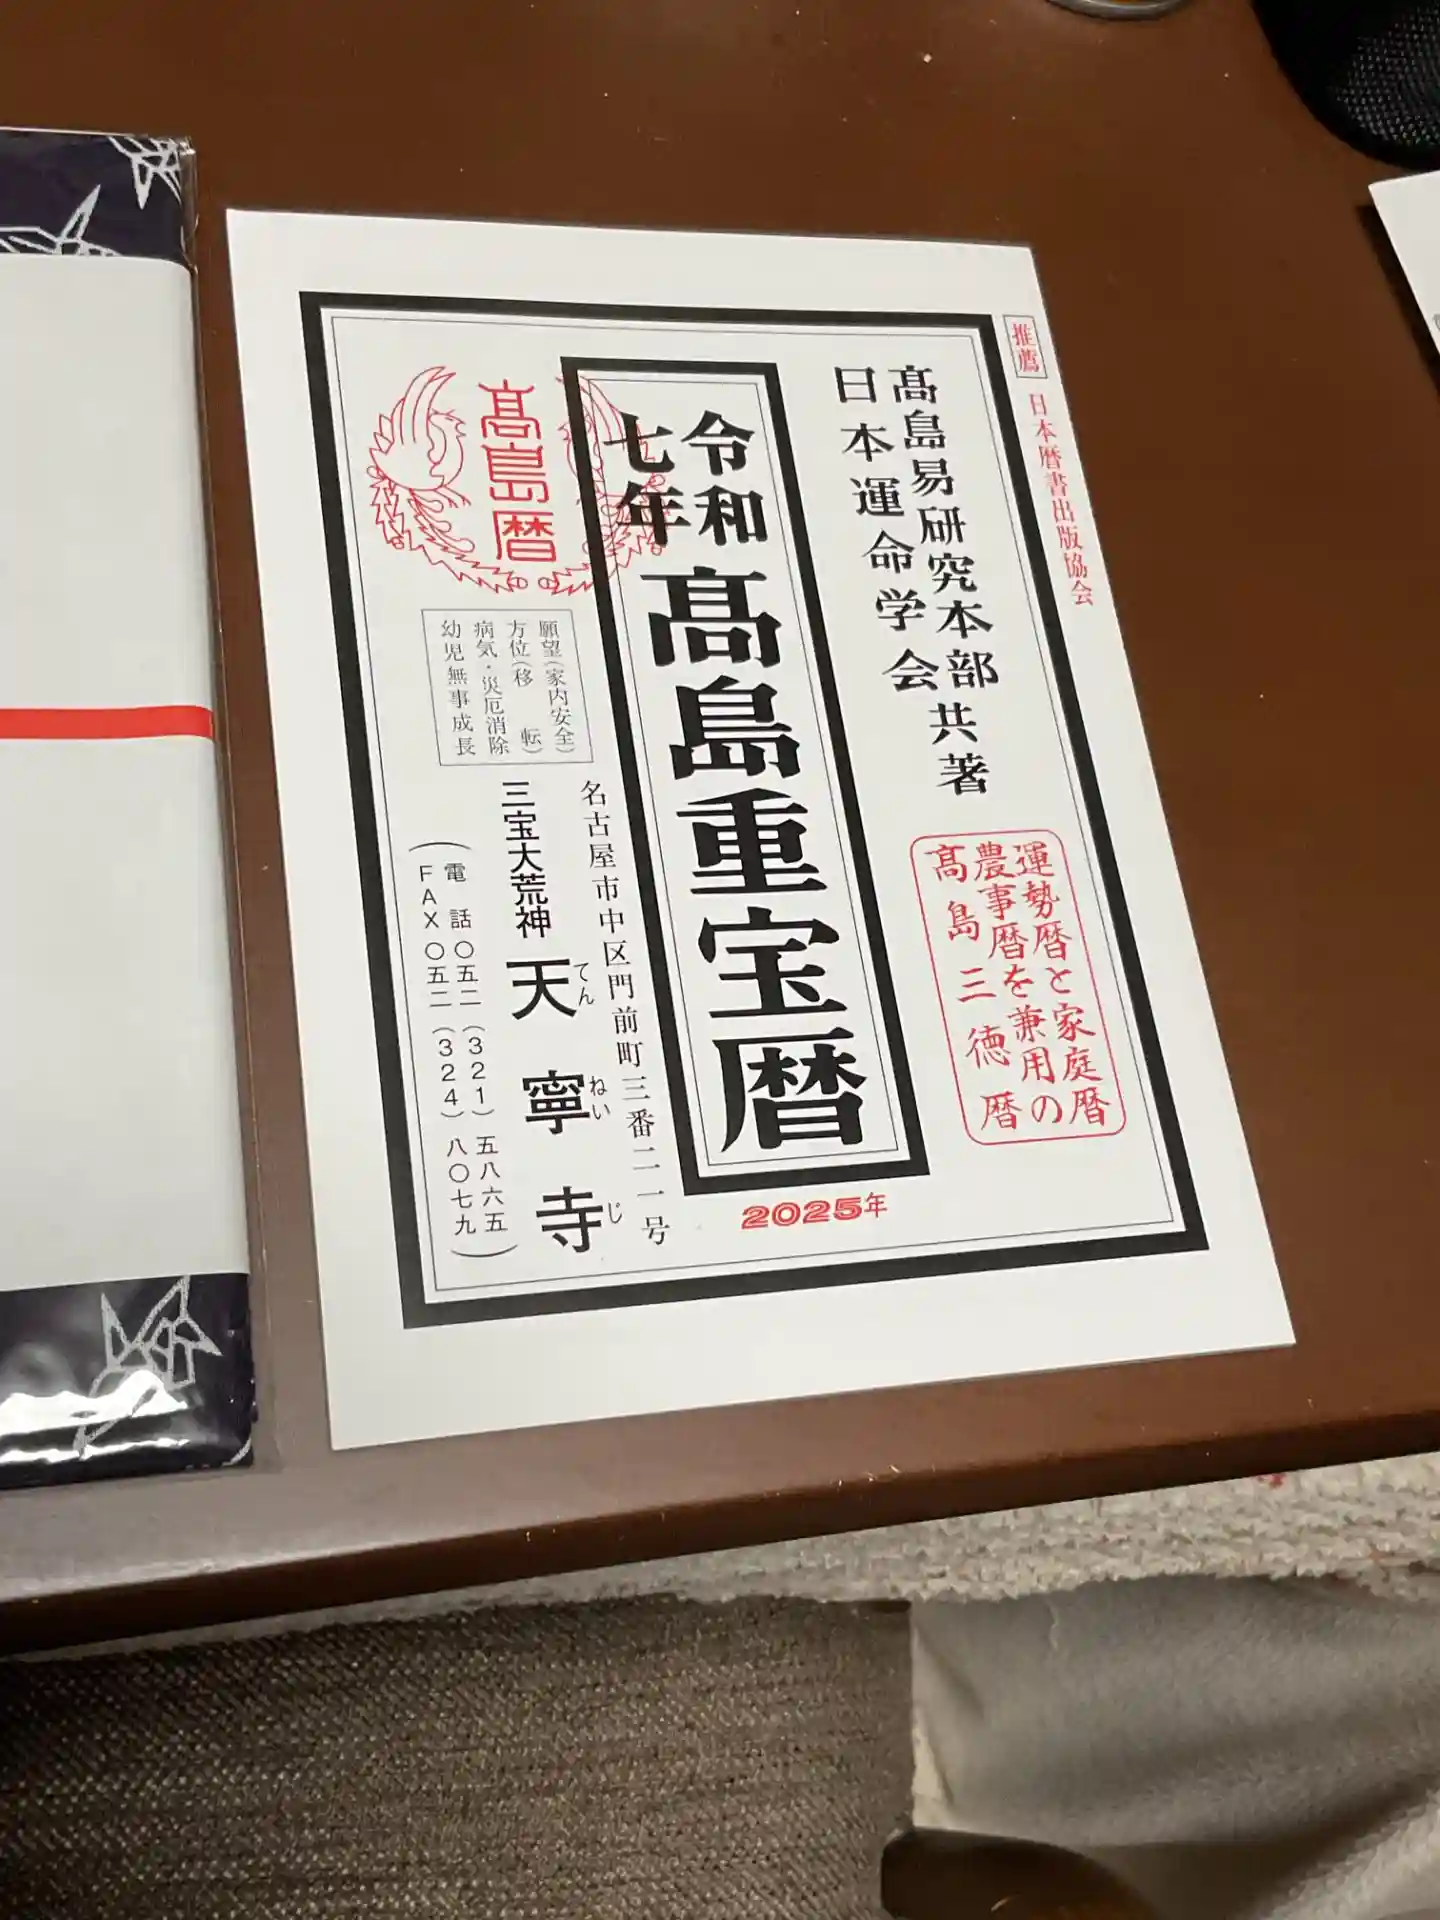 推薦 日本暦書出版協会
髙島易研究本部
日本運命学会
共著
運勢暦と家庭暦
農事暦を兼用の
髙島三徳暦
令和
七年
髙島重宝暦
2025年
髙島暦
願望(家内安全)
方位(移転)
病気・災厄消除
幼児無事成長
名古屋市中区門前町三番二一号
三宝大荒神 天寧寺
てんねいじ
(電話〇五二(321)五八六五
FAX〇五二(324)八〇七九)